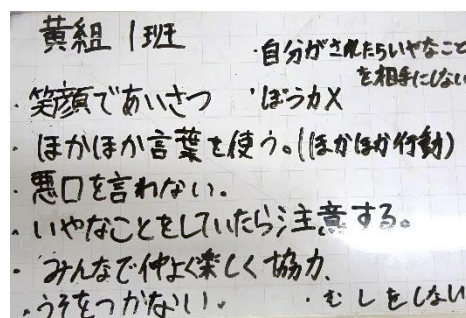 黄組 1班
・自分がされたらいやなこと
を相手にしない
・笑顔であいさつ
・ぼう力×
・ほかほか言葉を使う。(ほかほか行動)
・悪口を言わない。
・いやなことをしていたら注意する。
・みんなで仲よく楽しく協力、
・うそをつかない。
・むしをしない